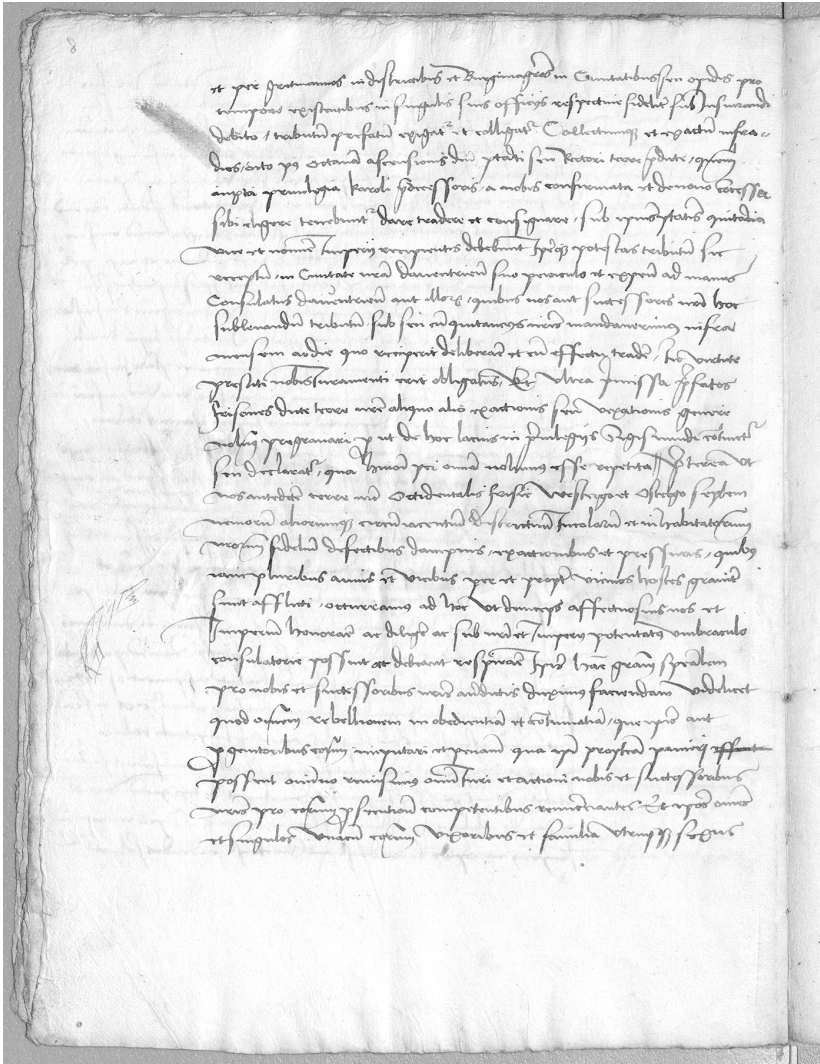 et per gretmannos in districtibus et Burgimagros in Civitatibus seu opidis pro
tempore existentibus in singulis suis officijs respective fidelit sub Jusiurandi
debito, tributum prefatum exigat et colligat Collectumq et exactum infra
dies octo p9 octavam ascensionis dni ptati seu Rectori terre pdicte, quem
Karoli pdecessoris a nobis confirmata et denuo concessa
sibi eligere tenebunt dare tradere et consignare, sub quitancia
vice et nomine Imperij recipientis debebunt Ipsaq potestas tributum sic
receptum in Civitate nram daventrien suo periculo et expen ad manus
Consulatus daventrien aut illorum, quibus nos aut successores nri hoc
sublevandum tributum sub seu cum quitancijs nris mandaverimus infra
mensem a die quo receperit deliberare et cum effectu tradere, sic virtute
prestiti nobis Juramenti erit obligatus, Et ultra pmissa pfatos
frisones dicte terre nre aliquo alio exactionis seu vexationis genere
nolumus pregravari prout de hoc lacius in privilegijs Sigismundi continet
seu declarat, qua hic pro omnia volumus esse repetita // Preterea ut
nos antedicte terre nre Occidentalis frisie Westergo et Ostergo septem
nemorum aliorumq circumiacentium districtuum Incolarum et inhabitatorum
nrorum fidelium defectibus dampnis, exactionibus et pressuris, quibus
iam pluribus annis et vicibus per et propter vicinos hostes gravit
sunt afflicti, occurramus ad hoc ut deinceps affectuosius nos et
Imperium honorare ac diligere ac sub nri et Imperij potentatus umbraculo
consulatorie possint ac debeant respirare Ipis hanc gram specialem
pro nobis et successoribus nris antedictis duximus faciendam videlicet
quod omnem rebellionem inobedientiam et contumatiam, que ipis aut
progenitoribus eorum imputari et penam qua ipi propterea puniri
possent omnino remisimus omni Juri et actioni nobis et successoribus
nris pro eorum psecutione competentibus renunciantes Et ipos omnes
et singulos unacum eorum uxoribus et familia utriusq sexus